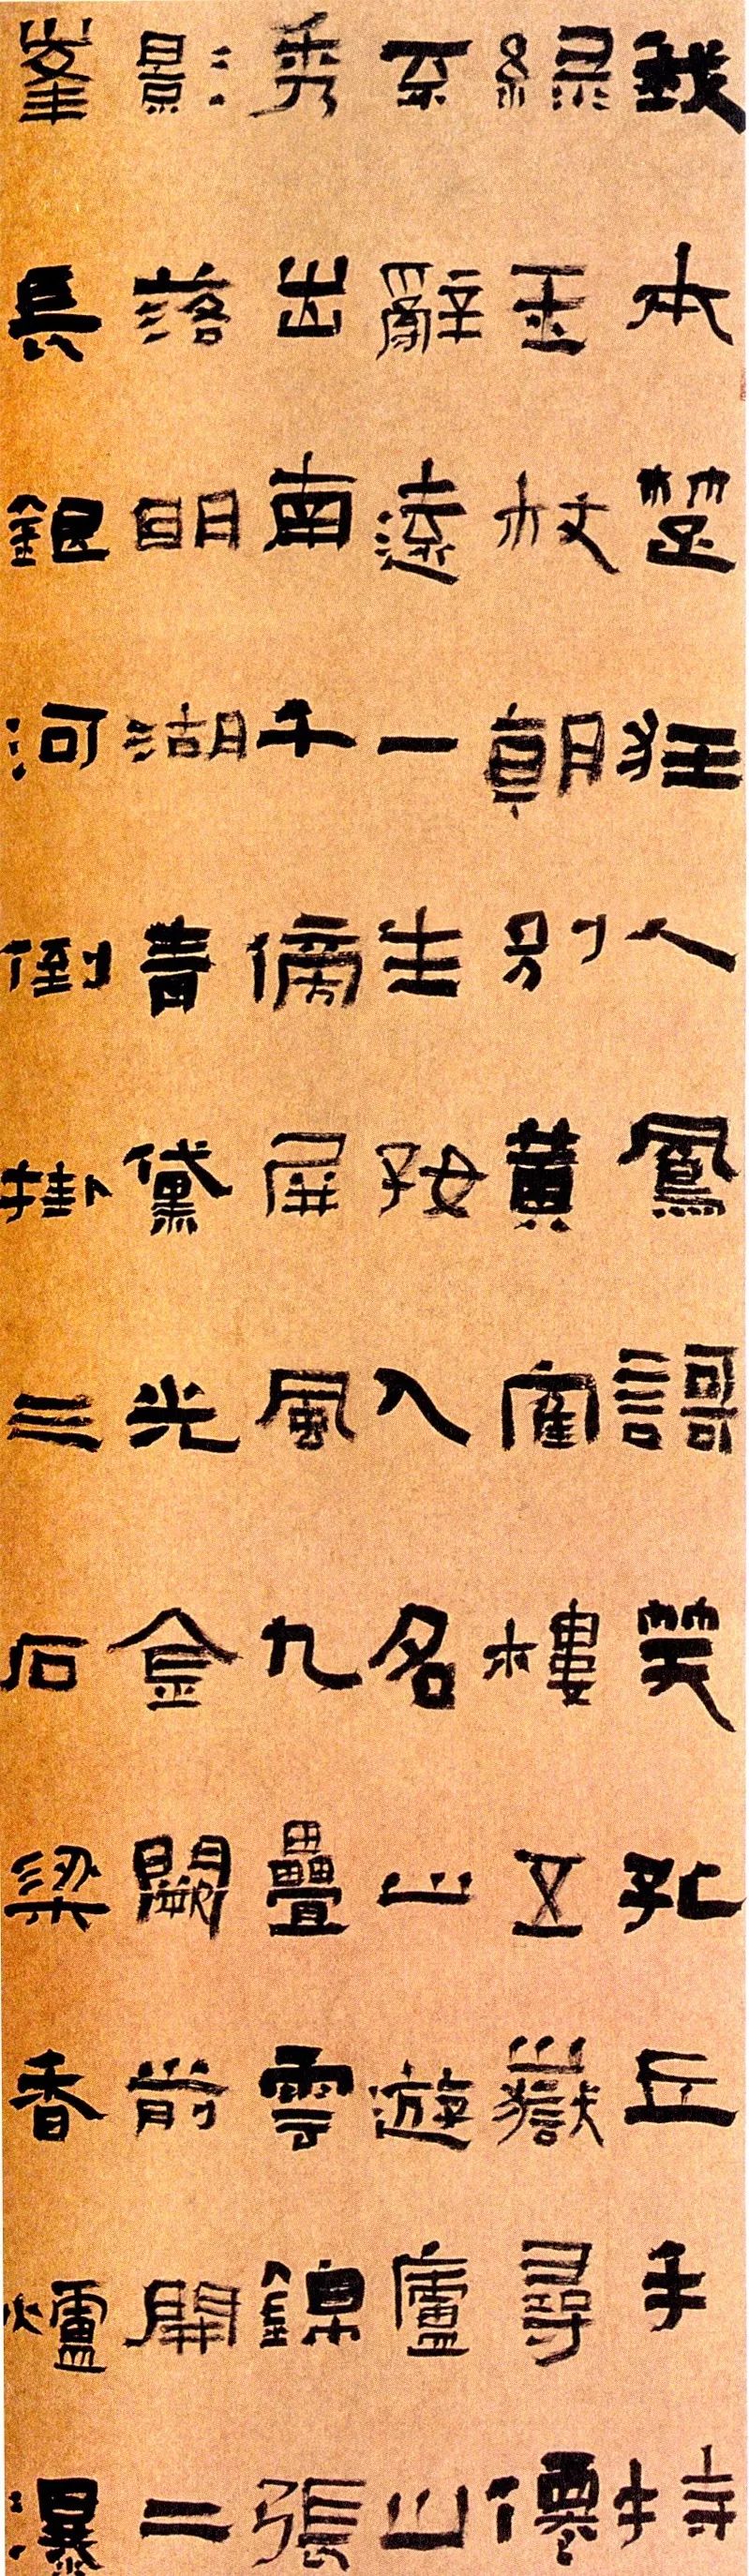 我本楚狂人鳳謌笑孔丘手持
綠玉杖朝別黃崔樓五嶽尋僊
不辭遠一生好入名山遊廬山
秀出南千傍屏風九疊雲錦張
影落明湖青黛光金闕前開二
峯長銀河倒掛三石梁香爐瀑